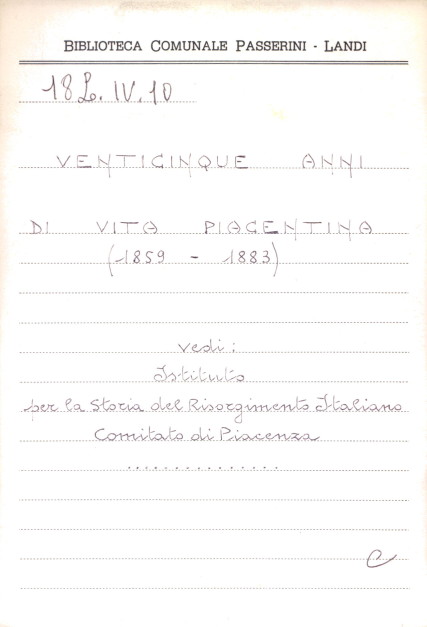 BIBLIOTECA COMUNALE PASSERINI - LANDI
18L.IV.10
VENTICINQUE ANNI
DI VITA PIACENTINA
(1859 - 1883)
vedi:
Istituto
per la Storia del Risorgimento Italiano
Comitato di Piacenza
...............
C